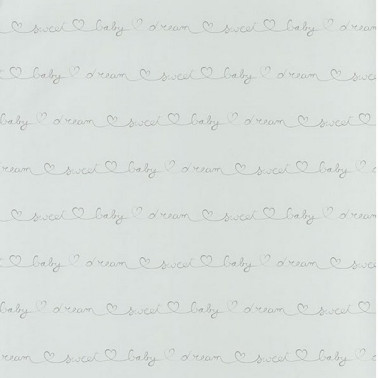 sweet baby dream sweet baby dream
baby dream sweet baby dream
baby dream sweet baby dream sweet
dream sweet baby dream sweet baby
sweet baby dream sweet baby dream
baby dream sweet baby dream
baby dream sweet baby dream sweet
dream sweet baby dream sweet baby